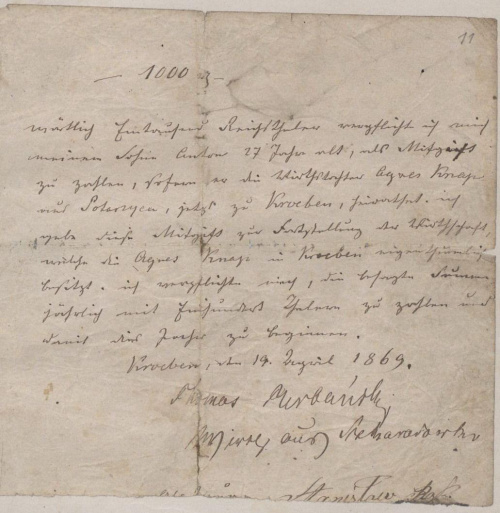 11
— 1000 —
wörtlich Eintausend Reichsthaler verpflichte ich mich
meinem Sohne Anton 27 Jahr alt, als Mitgift
zu zahlen, sofern er die Wirthstochter Agnes
aus jetzt zu Kroeben, heirathet. ich
gebe diese Mitgift zur Feststellung der Wirthschaft,
welche die Agnes in Kroeben eigenthümlich
besitzt. ich verpflichte mich, die besagte Summe
jährlich mit Einhundert Thalern zu zahlen und
damit dies Jahr zu beginnen.
Kroeben, den 19. April 1869.
Thomas Urbański
aus
Stanislaw